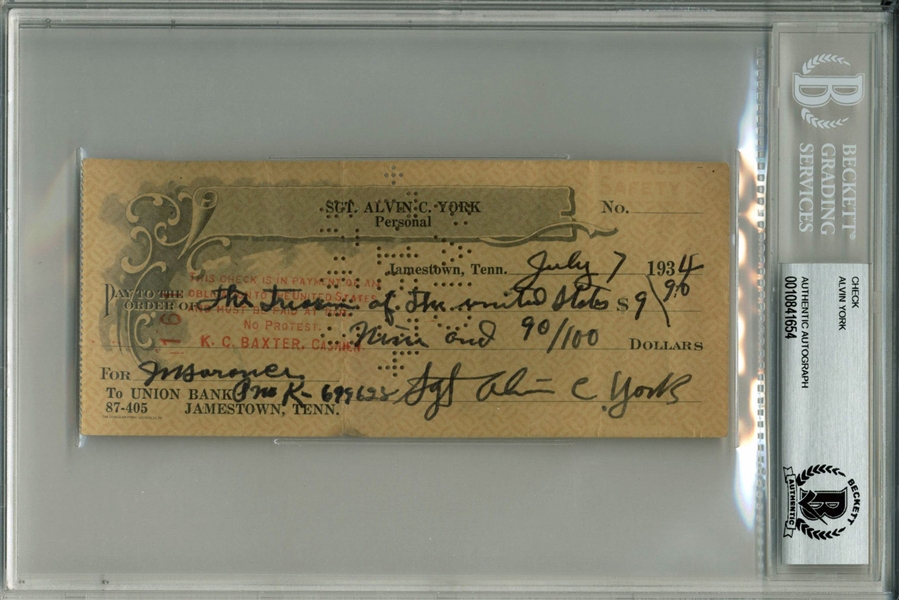 SGT. ALVIN C. YORK
Personal
No.
Jamestown, Tenn. July 7 1934
THIS CHECK IS IN PAYMENT OF AN
OBLIGATION TO THE UNITED STATES
AND MUST BE PAID AT PAR.
NO PROTEST.
K. C. BAXTER, CASHIER
PAY TO THE
ORDER OF The of the united States $ 9 90
Nine and 90/100 DOLLARS
FOR Insurance
K- 699628 Sgt Alvin C York
TO UNION BANK
87-405 JAMESTOWN, TENN.
B
BECKETT
GRADING
SERVICES
CHECK
ALVIN YORK
AUTHENTIC AUTOGRAPH
0010841654
BECKETT
B
AUTHENTIC